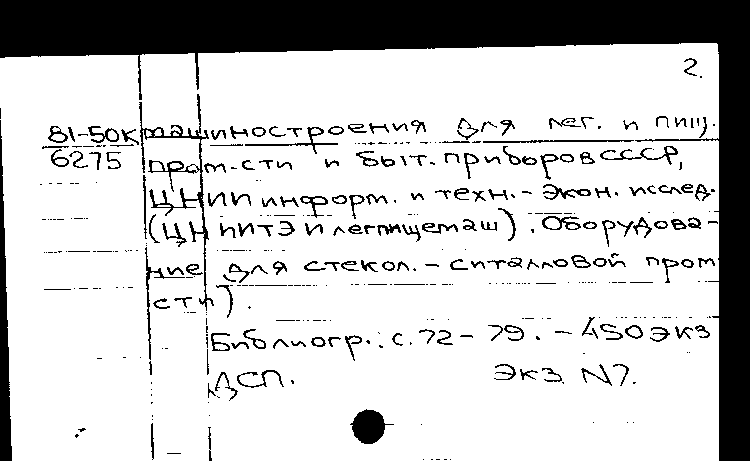 2.
81-50к машиностроения для лег. и пищ.
6275 пром-сти и быт. приборов СССР,
ЦНИИ информ. и техн.- экон. исслед.
(ЦНИИТЭИлегпищемаш). Оборудова-
ние для стекол.- ситалловой пром
сти).
Библиогр.: с. 72- 79. - 450 экз
ДСП. экз N7.